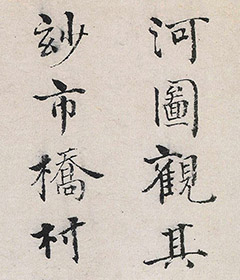 河圖觀其
玅市橋村